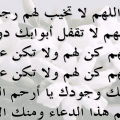 اللهم لا تخيب لهم رجـ
م لا تقفل أبوابك دو
هم كن لهم ولا تكن عـ
م كن لهم ولا تكن عـ
ك وجودك يا أرحم الـ
م هذا الدعاء ومنك ال